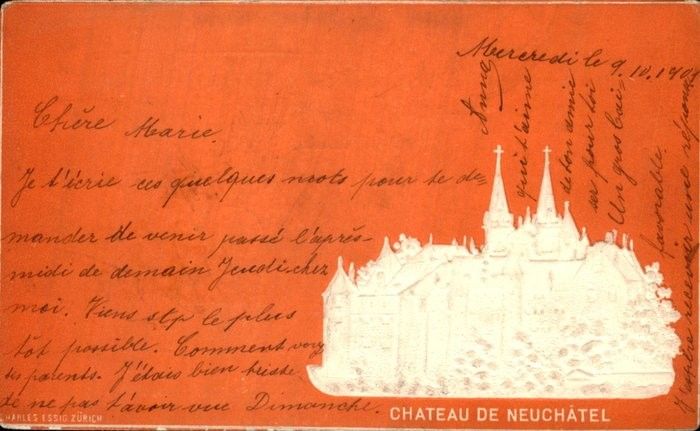 Mercredi le 9.10.190
Chère Marie
Je t'écrie ces quelques mots pour te de=
mander de venir passé l'après-
midi de demain Jeudi chez
moi. Viens stp le plus
tôt possible. Comment vont
tes parents. J'étais bien triste
de ne pas t'avoir vue Dimanche.
favorable.
Un gros bai-
ser pour toi
de ton amie
qui t'aime
Anna
CHATEAU DE NEUCHÂTEL
CHARLES ESSIG ZÜRICH